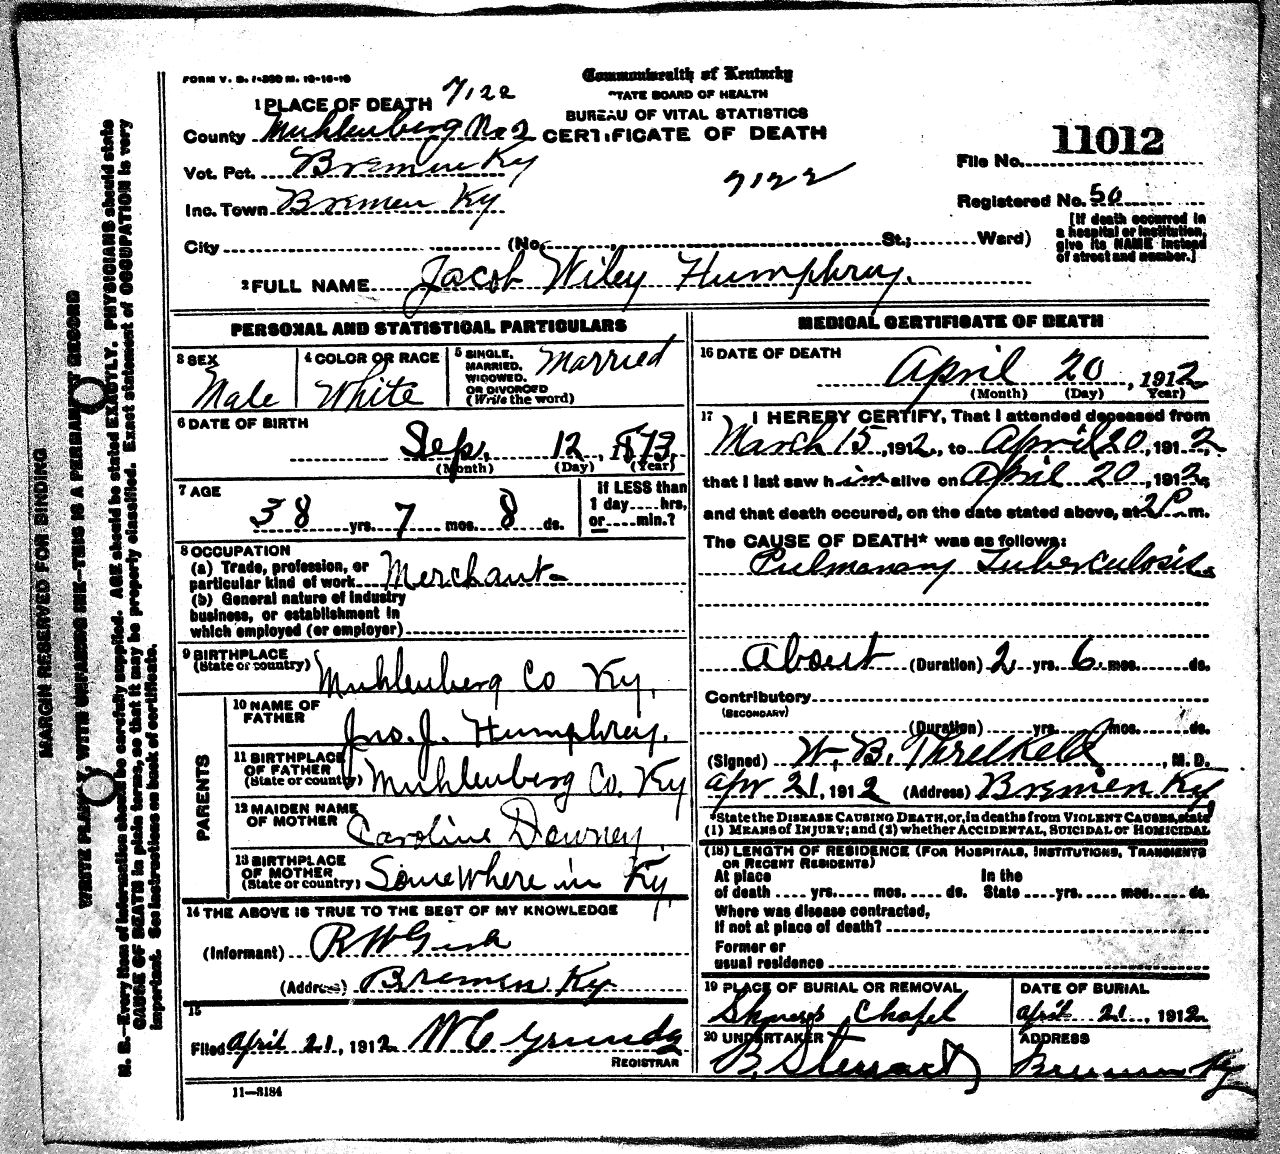 FORM V. S. 1-350 M. 10-10-10
Commonwealth of Kentucky
STATE BOARD OF HEALTH
BUREAU OF VITAL STATISTICS
CERTIFICATE OF DEATH
1 PLACE OF DEATH 7122
County Muhlenberg No 2
Vot. Pct. Bremen Ky
Inc. Town Bremen Ky
City (No. , St.; Ward)
7122
File No. 11012
Registered No. 50
[If death occurred in
a hospital or institution,
give its NAME instead
of street and number.]
2 FULL NAME Jacob Wiley Humphrey.
PERSONAL AND STATISTICAL PARTICULARS
3 SEX
Male
4 COLOR OR RACE
White
5 SINGLE,
MARRIED,
WIDOWED,
OR DIVORCED
(Write the word)
Married
6 DATE OF BIRTH
Sep. 12, 1873.
(Month) (Day) (Year)
7 AGE
38 yrs. 7 mos. 8 ds.
If LESS than
1 day ... hrs,
or ... min.?
8 OCCUPATION
(a) Trade, profession, or
particular kind of work Merchant
(b) General nature of industry
business, or establishment in
which employed (or employer)
9 BIRTHPLACE
(State or country) Muhlenberg Co Ky.
PARENTS
10 NAME OF
FATHER Jno. J. Humphrey.
11 BIRTHPLACE
OF FATHER
(State or country) Muhlenberg Co. Ky
12 MAIDEN NAME
OF MOTHER Caroline Downey
13 BIRTHPLACE
OF MOTHER
(State or country) Somewhere in Ky,
14 THE ABOVE IS TRUE TO THE BEST OF MY KNOWLEDGE
(Informant) R W Gish
(Address) Bremen Ky
15
Filed April 21, 1912 W C Grundy
REGISTRAR
11-3184
MEDICAL CERTIFICATE OF DEATH
16 DATE OF DEATH
April 20, 1912
(Month) (Day) Year)
17 I HEREBY CERTIFY, That I attended deceased from
March 15, 1912, to April 20, 1912,
that I last saw him alive on April 20, 1912,
and that death occured, on the date stated above, at 2 P. m.
The CAUSE OF DEATH* was as follows:
Pulmonary Tuberculosis.
About (Duration) 2 yrs. 6 mos. ds.
Contributory
(SECONDARY)
(Duration) yrs. mos. ds.
(Signed) W. B. Threlkeld, M. D.
Apr 21, 1912 (Address) Bremen Ky,
*State the DISEASE CAUSING DEATH, or, in deaths from VIOLENT CAUSES, state
(1) MEANS of INJURY; and (2) whether ACCIDENTAL, SUICIDAL or HOMICIDAL
(18) LENGTH OF RESIDENCE (FOR HOSPITALS, INSTITUTIONS, TRANSIENTS
OR RECENT RESIDENTS)
At place In the
of death yrs. mos. ds. State yrs. mos. ds.
Where was disease contracted,
If not at place of death?
Former or
usual residence
19 PLACE OF BURIAL OR REMOVAL
Chapel
DATE OF BURIAL
April 21, 1912
20 UNDERTAKER
B.
ADDRESS
Bremen Ky
MARGIN RESERVED FOR BINDING
WRITE PLAINLY, WITH UNFADING INK—THIS IS A PERMANENT RECORD
N. B.—Every item of information should be carefully supplied. AGE should be stated EXACTLY. PHYSICIANS should state
CAUSE OF DEATH in plain terms, so that it may be properly classified. Exact statement of OCCUPATION is very
important. See instructions on back of certificate.